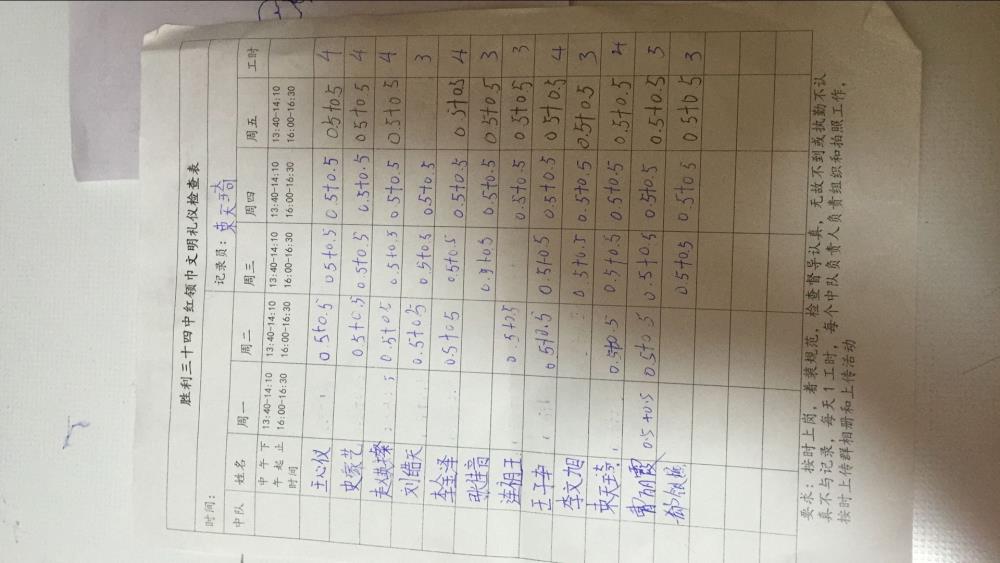 胜利三十四中红领巾文明礼仪检查表
时间： 记录员：
中队 姓名 周一 周二 周三 周四 周五 工时
中午 下午 起止时间 13:40-14:10 16:00-16:30 13:40-14:10 16:00-16:30 13:40-14:10 16:00-16:30 13:40-14:10 16:00-16:30 13:40-14:10 16:00-16:30
王心仪 0.5+0.5 0.5+0.5 0.5+0.5 0.5+0.5 4
史家艺 0.5+0.5 0.5+0.5 0.5+0.5 0.5+0.5 4
0.5+0.5 0.5+0.5 0.5+0.5 0.5+0.5 4
刘皓天 0.5+0.5 0.5+0.5 0.5+0.5 3
李金泽 0.5+0.5 0.5+0.5 0.5+0.5 0.5+0.5 4
张佳音 0.5+0.5 0.5+0.5 0.5+0.5 3
0.5+0.5 0.5+0.5 0.5+0.5 3
王子冉 0.5+0.5 0.5+0.5 0.5+0.5 0.5+0.5 4
李文旭 0.5+0.5 0.5+0.5 0.5+0.5 3
0.5+0.5 0.5+0.5 0.5+0.5 0.5+0.5 4
曹丽霞 0.5+0.5 0.5+0.5 0.5+0.5 0.5+0.5 0.5+0.5 5
0.5+0.5 0.5+0.5 0.5+0.5 3
要求：按时上岗，着装规范，检查督导认真，无故不到或执勤不认
真不与记录，每天1工时，每个中队负责人负责组织和拍照工作，
按时上传群相册和上传活动